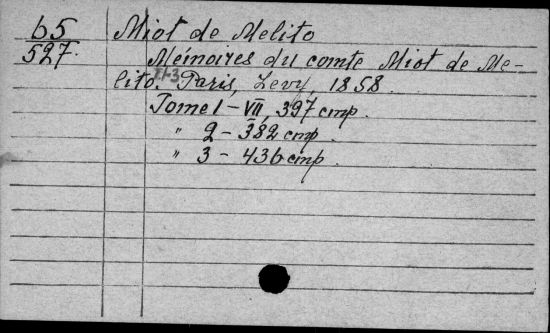 65 Miot de Melito
527. Mémoires du comte Miot de Me-
lito. T.1-3 Paris, Levy, 1858.
Tome 1 - VII, 397 cmp.
" 2 - 382 cmp.
" 3 - 436 cmp.